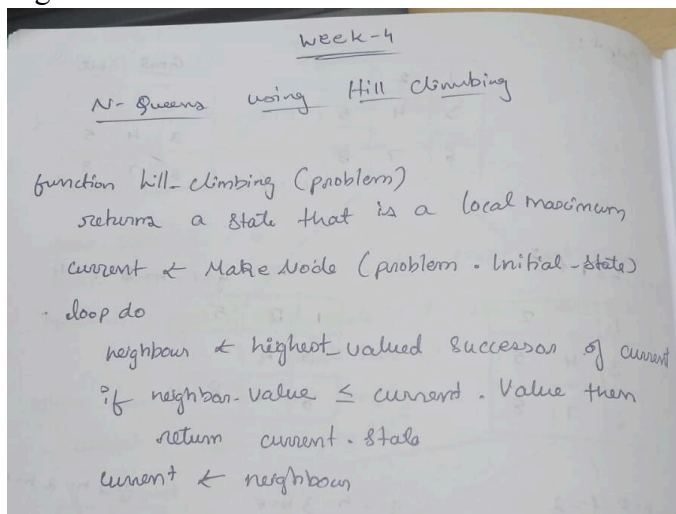 Week-4
N-Queens using Hill climbing
function hill-climbing (problem)
returns a state that is a local maximum
current ← Make Node (problem . Initial-State)
loop do
neighbour ← highest-valued successor of current
if neighbor.value ≤ current . Value then
return current . State
current ← neighbour